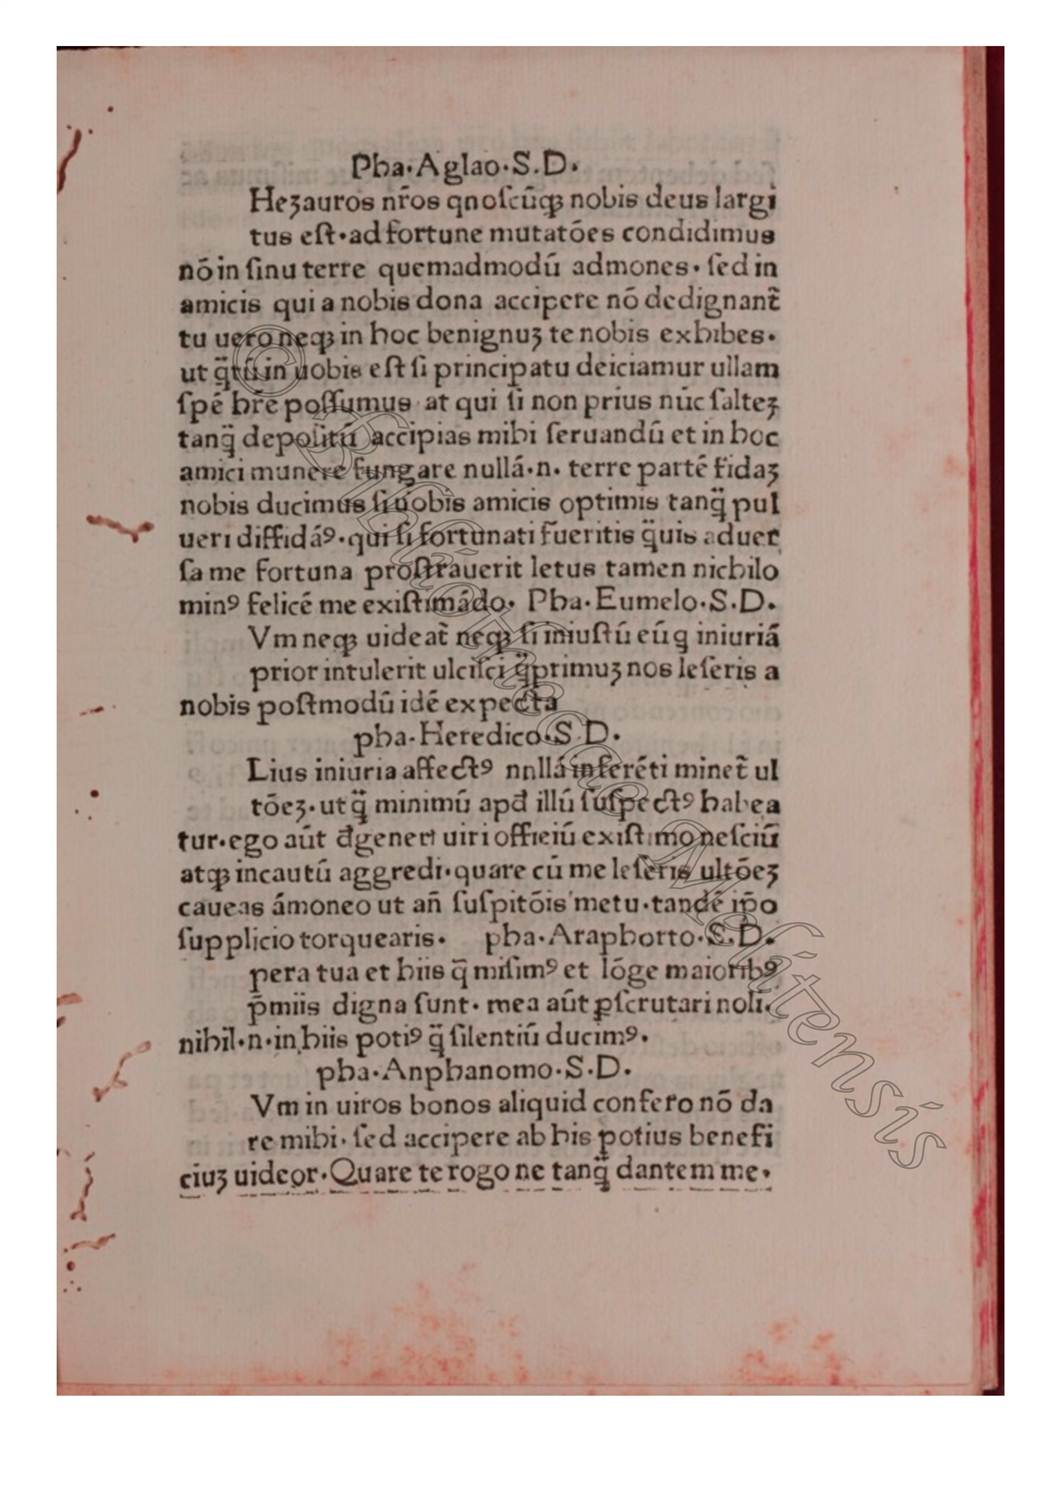 Pha·Aglao·S.D.
Heʒauros nr̃os qnoſcũqꝫ nobis deus largi
tus eſt·ad fortune mutatões condidimus
nõ in ſinu terre quemadmodũ admones·ſed in
amicis qui a nobis dona accipere nõ dedignant᷑
tu uero neqꝫ in hoc benignuʒ te nobis exhibes·
ut q̃tũ in uobis eſt ſi principatu deiciamur ullam
ſpẽ hr̃e poſſumus·at qui ſi non prius nũc ſalteʒ
tanq̃ depoſitũ accipias mihi ſeruandũ et in hoc
amici munere fungare nullá·n·terre partẽ fidaʒ
nobis ducimus ſi uobis amicis optimis tanq̃ pul
ueri diffidáꝰ·qui ſi fortunati fueritis q̃uis aduer
ſa me fortuna proſtrauerit letus tamen nichilo
minꝰ felicẽ me exiſtimádo· Pha·Eumelo·S.D.
Vm neqꝫ uideat᷑ neqꝫ ſi iniuſtũ eũq iniuriá
prior intulerit ulciſci q̃primuʒ nos leſeris a
nobis poſtmodũ idẽ expecta
pha·Heredico·S.D.
Lius iniuria affectꝰ nnllá inferẽti minet᷑ ul
tõeʒ·utq̃ minimũ apđ illũ ſuſpectꝰ habea
tur·ego aũt đgeneri uiri officiũ exiſtimo neſciũ
atqꝫ incautũ aggredi·quare cũ me leſeris ultõeʒ
caueas ámoneo ut añ ſuſpitõis metu·tandẽ ip̃o
ſupplicio torquearis· pha·Araphorto·S.D.
pera tua et hiis q̃ miſimꝰ et lõge maioribꝰ
p̃miis digna ſunt·mea aũt ꝑſcrutari noli·
nihil·n·in hiis potiꝰ q̃ ſilentiũ ducimꝰ.
pha·Anphanomo·S.D.
Vm in uiros bonos aliquid confero nõ da
re mihi·ſed accipere ab his potius benefi
ciuʒ uideor·Quare te rogo ne tanq̃ dantem me·
© Bibliotheca Melitensis